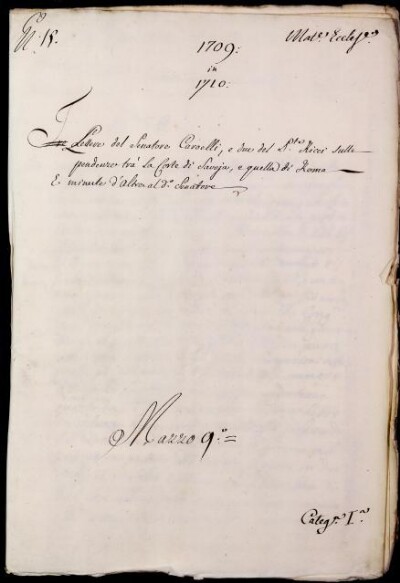 N.° 15.
Mat.e Eccles.e
1709:
in
1710:
Lettere del Senatore Caroelli, e due del S.r Ricci sulle
pendenze trà La Corte di Savoja, e quella di Roma
E minute d'altre al d.° Senatore
Mazzo 9.°=
Categ.a I.a